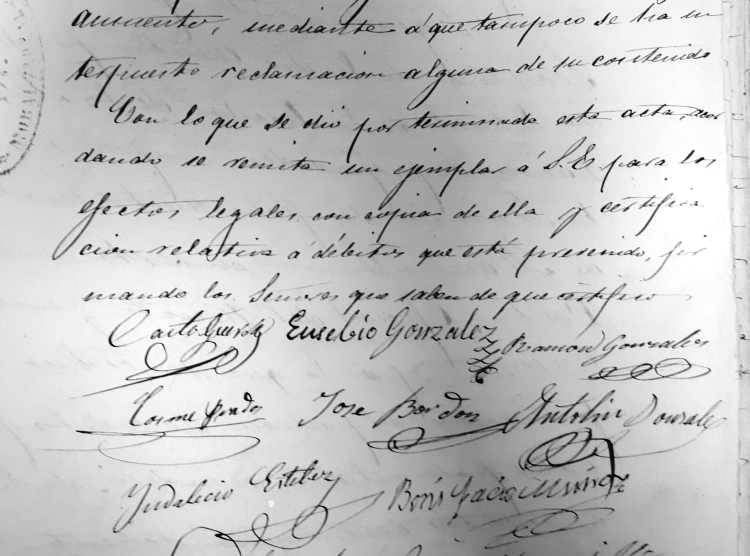 aumento, mediante á que tampoco se ha in
terpuesto reclamacion alguna de su contenido
Con lo que se dió por terminada esta acta, acor
dando se remita un ejemplar á S.E para los
efectos legales con copia de ella y certifica
cion relativa á débitos que está prevenido, fir
mando los Señores que saben de que certifico
Eusebio Gonzalez Ramon Gonzales
Cosme José Bordon Antolin Gonzalez
Yndalecio Esteban